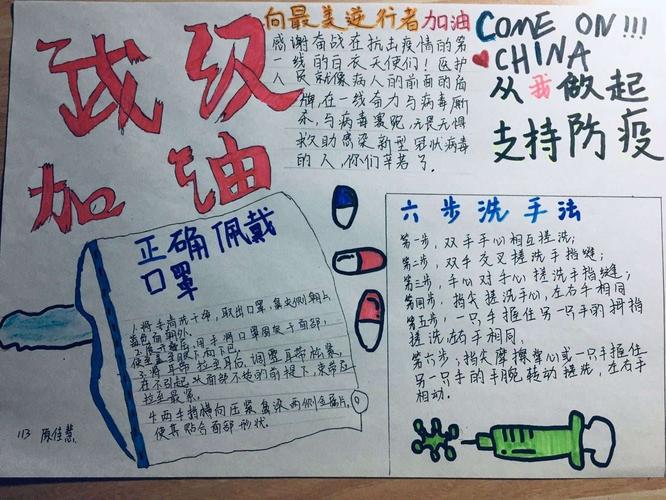 武汉
加油
向最美逆行者加油
感谢奋战在抗击疫情的第
一线的白衣天使们！医护
人员就像病人的前面的盾
牌，在一线奋力与病毒厮
杀，与病毒赛跑，无畏无惧
救助感染新型冠状病毒
的人，你们辛苦了。
COME ON!!!
CHINA
从我做起
支持防疫
正确佩戴
口罩
1.将手清洗干净，取出口罩，鼻夹侧朝上
蓝色面朝外。
3.将耳带拉至耳后，调整耳带松紧，
在不引起头面部不适的前提下，束带应
拉至最紧。
4.两手指横向压紧鼻梁两侧金属片，
使其贴合面部形状。
六步洗手法
第一步，双手手心相互搓洗；
第二步，双手交叉搓洗手指缝；
第三步，手心对手心搓洗手指缝；
第四步，指尖搓洗手心，左右手相同
第五步，一只手握住另一只手的拇指
搓洗，左右手相同，
第六步；指尖摩擦掌心或一只手握住
另一只手的手腕转动搓洗，左右手
相动．
113